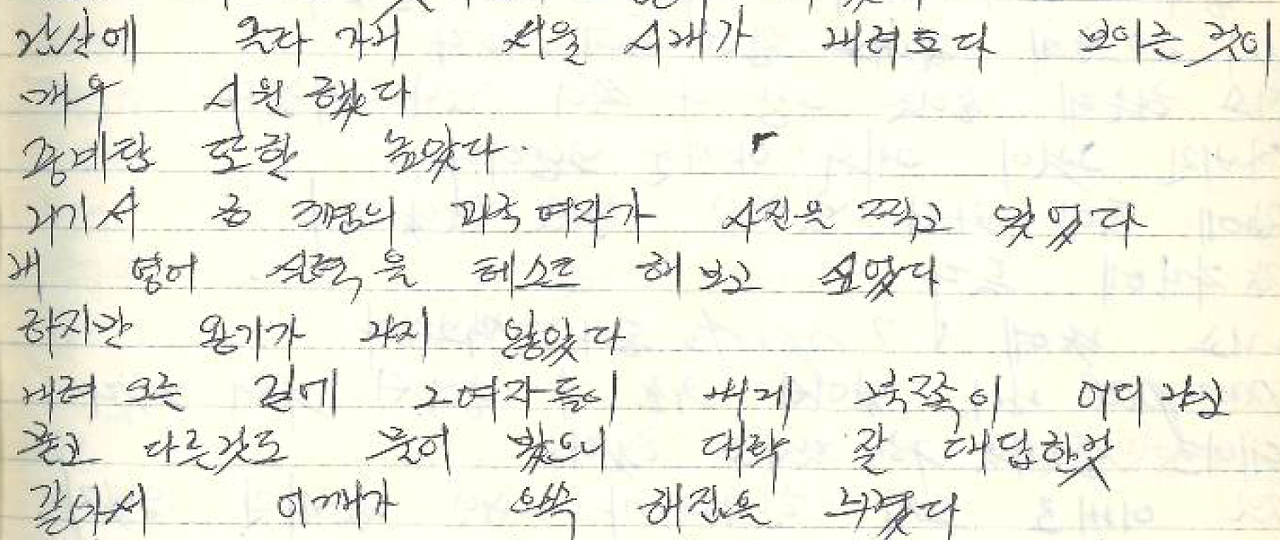 간산에 올라 가니 서울 시내가 내려오다 보이는 것이
매우 시원 했다
중계탑 또한 높았다.
거기서 큰 3명의 미국 여자가 사진을 찍고 있었다
내 영어 실력을 테스트 해 보고 싶었다
하지만 용기가 나지 않았다
내려 오는 길에 그여자들이 내게 북쪽이 어디냐고
묻고 다른것도 물어 봤으니 대략 잘 대답한것
같아서 어깨가 으쓱 해짐을 느꼈다